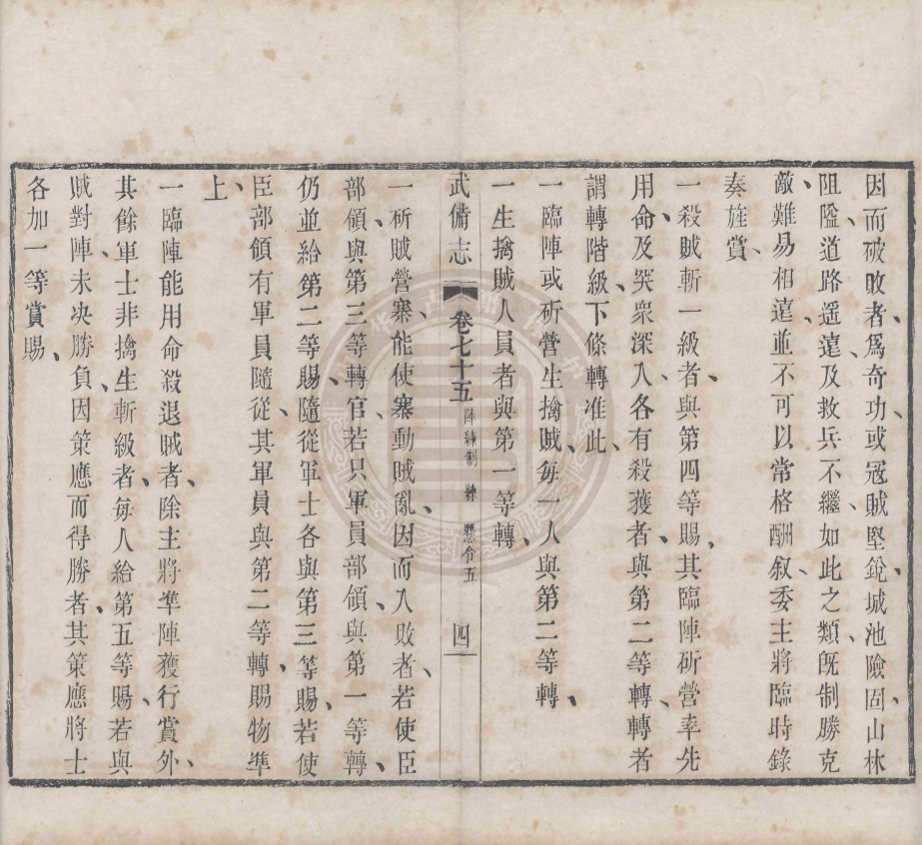 因而破敗者、爲奇功或冠賊堅銳、城池險固、山林
阻隘、道路遥遠、及救兵不繼、如此之類、旣制勝克
敵、難易相遠、並不可以常格酬叙、委主將臨時錄
奏旌賞、
一殺賊斬一級者、與第四等賜、其臨陣斫營率先
用命、及突衆深入、各有殺獲者、與第二等轉、轉者
謂轉階級、下條轉准此、
一臨陣或斫營生擒賊、每一人與第二等轉、
一生擒賊人員者與第一等轉、
武備志 卷七十五 陣練制 練 懸令五 四
一斫賊營寨、能使寨動賊亂、因而入敗者、若使臣
部領、與第三等轉官、若只軍員部領、與第一等轉、
仍並給第二等賜、隨從軍士各與第三等賜、若使
臣部領有軍員隨從、其軍員與第二等轉、賜物準
上、
一臨陣能用命殺退賊者、除主將準陣獲行賞外、
其餘軍士非擒生斬級者、每人給第五等賜、若與
賊對陣未决勝負、因策應而得勝者、其策應將士
各加一等賞賜、